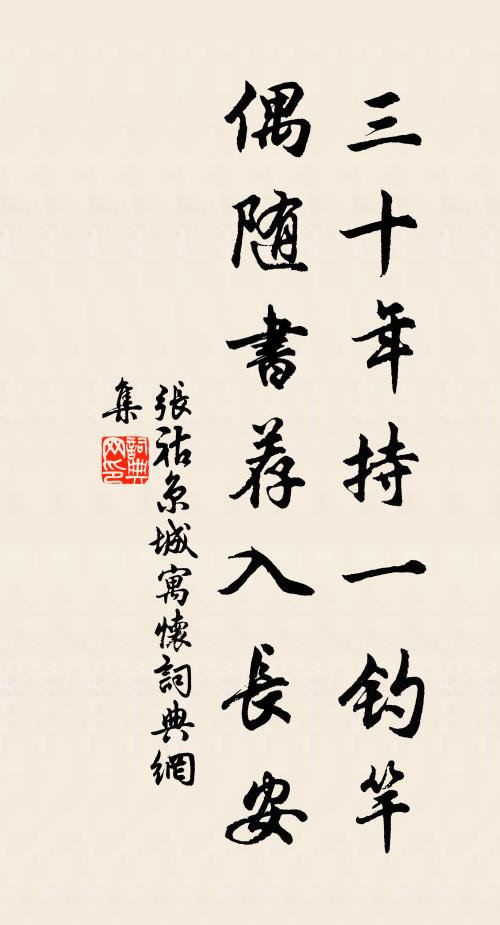 三十年持一钓竿
偶随書荐入長安
張祜京城寓懷詞典網
集
詞典
网印